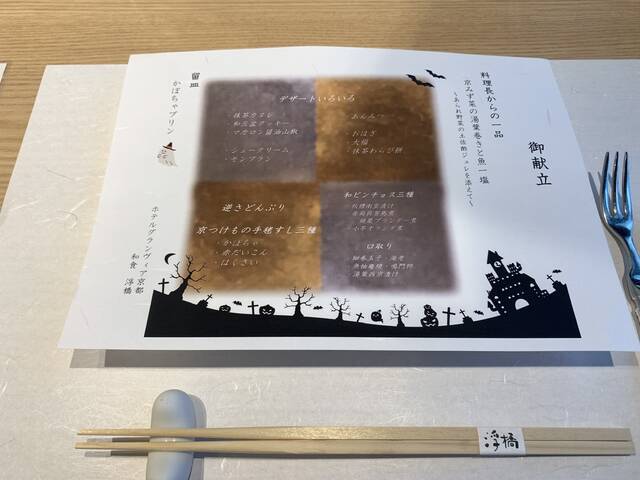 御献立
料理長からの一品
京みず菜の湯葉巻きと魚一塩
～あられ野菜の土佐酢ジュレを添えて～
デザートいろいろ
・抹茶カヌレ
・和三盆クッキー
・マカロン醤油山椒
・シュークリーム
・モンブラン
あんみつ
・おはぎ
・大福
・抹茶わらび餅
逆さどんぶり
京つけもの手毬すし三種
・かぼちゃ
・赤だいこん
・はくさい
和ピンチョス三種
口取り
湯葉西京漬け
留皿
かぼちゃプリン
ホテルグランヴィア京都
和食 浮橋
浮橋